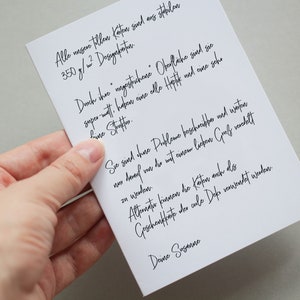 Alle unsere tollen Karten sind aus stabilen
350 g/m² Designkarton.
Durch ihre "ungestrichene" Oberfläche sind sie
super matt, haben eine edle Haptik und eine sehr
feine Struktur.
Sie sind ohne Probleme beschreibbar und warten
nur darauf von dir mit einem lieben Gruß veredelt
zu werden.
Alternativ können die Karten auch als
Geschenkkarte oder coole Deko verwendet werden.
Deine Susanne